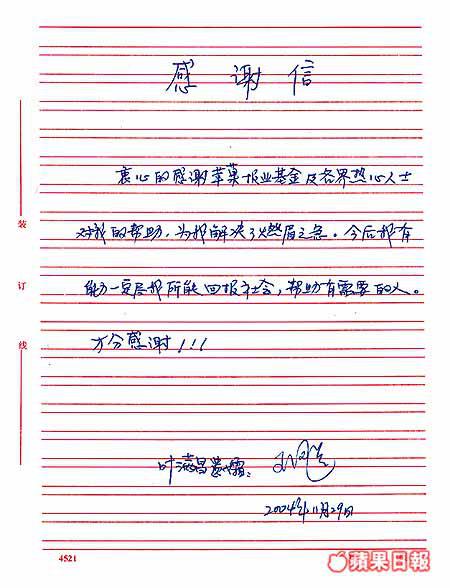 感谢信
衷心的感谢苹菓报业基金及各界热心人士
对我的帮助，为我解决了燃眉之急。今后我有
能力一定尽我所能回报社会，帮助有需要的人。
万分感谢！！！
装
订
线
叶满昌
2004年11月29日
4521
蘋果日報